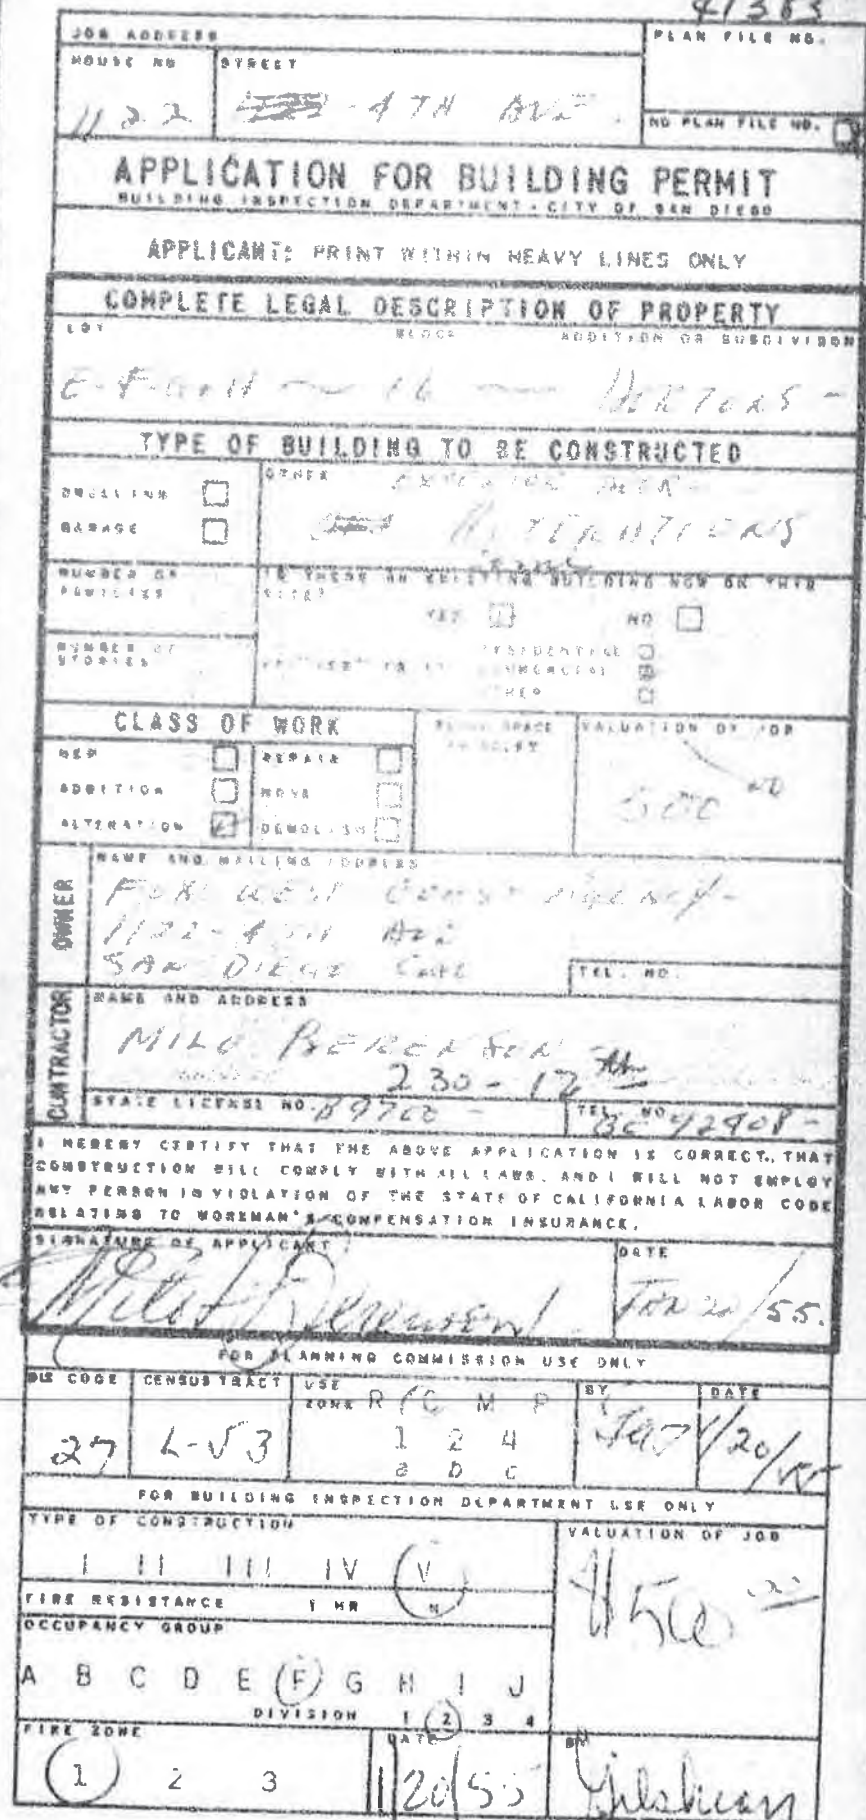 41363
JOB ADDRESS
PLAN FILE NO.
HOUSE NO STREET
1122 4TH AVE.
NO PLAN FILE NO.
APPLICATION FOR BUILDING PERMIT
BUILDING INSPECTION DEPARTMENT - CITY OF SAN DIEGO
APPLICANT: PRINT WITHIN HEAVY LINES ONLY
COMPLETE LEGAL DESCRIPTION OF PROPERTY
LOT BLOCK ADDITION OR SUBDIVISON
E-F-G+H 16 HORTONS -
TYPE OF BUILDING TO BE CONSTRUCTED
DWELLING OTHER
GARAGE ALTERATIONS
NUMBER OF FAMILIES
IS THERE AN EXISTING BUILDING NOW ON THIS SITE?
YES NO
NUMBER OF STORIES
RESIDENTIAL
COMMERCIAL
OTHER
CLASS OF WORK
FLOOR SPACE IN SQ. FT
VALUATION OF JOB
NEW REPAIR
ADDITION MOVE
ALTERATION DEMOLISH
500 00
OWNER
NAME AND MAILING ADDRESS
FOX WEST COAST AGENCY -
1122 - 4TH AVE
SAN DIEGO CALIF
TEL. NO.
CONTRACTOR
NAME AND ADDRESS
MILO BERENSEN
230 - 12th
STATE LICENSE NO. 89700 -
TEL. NO. 42908 -
I HEREBY CERTIFY THAT THE ABOVE APPLICATION IS CORRECT, THAT
CONSTRUCTION WILL COMPLY WITH ALL LAWS, AND I WILL NOT EMPLOY
ANY PERSON IN VIOLATION OF THE STATE OF CALIFORNIA LABOR CODE
RELATING TO WOREMAN'S COMPENSATION INSURANCE.
SIGNATURE OF APPLICANT DATE
JAN 20/55.
FOR PLANNING COMMISSION USE ONLY
BLK CODE CENSUS TRACT USE ZONE BY DATE
R C M P
1 2 4
a b c
27 L-53 1/20/55
FOR BUILDING INSPECTION DEPARTMENT USE ONLY
TYPE OF CONSTRUCTION VALUATION OF JOB
I II III IV V
FIRE RESISTANCE 1 HR N
$500 00
OCCUPANCY GROUP
A B C D E F G H I J
DIVISION 1 2 3 4
FIRE ZONE DATE BY
1 2 3 1/20/55